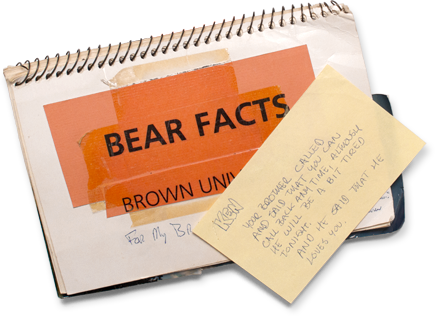 BEAR FACTS
BROWN UNIV
For My BR
KEN
YOUR BROTHER CALLED
AND SAID THAT YOU CAN
CALL BACK ANY TIME, ALTHOUGH
HE WILL BE A BIT TIRED
TONIGHT.
AND HE SAID THAT HE
LOVES YOU.